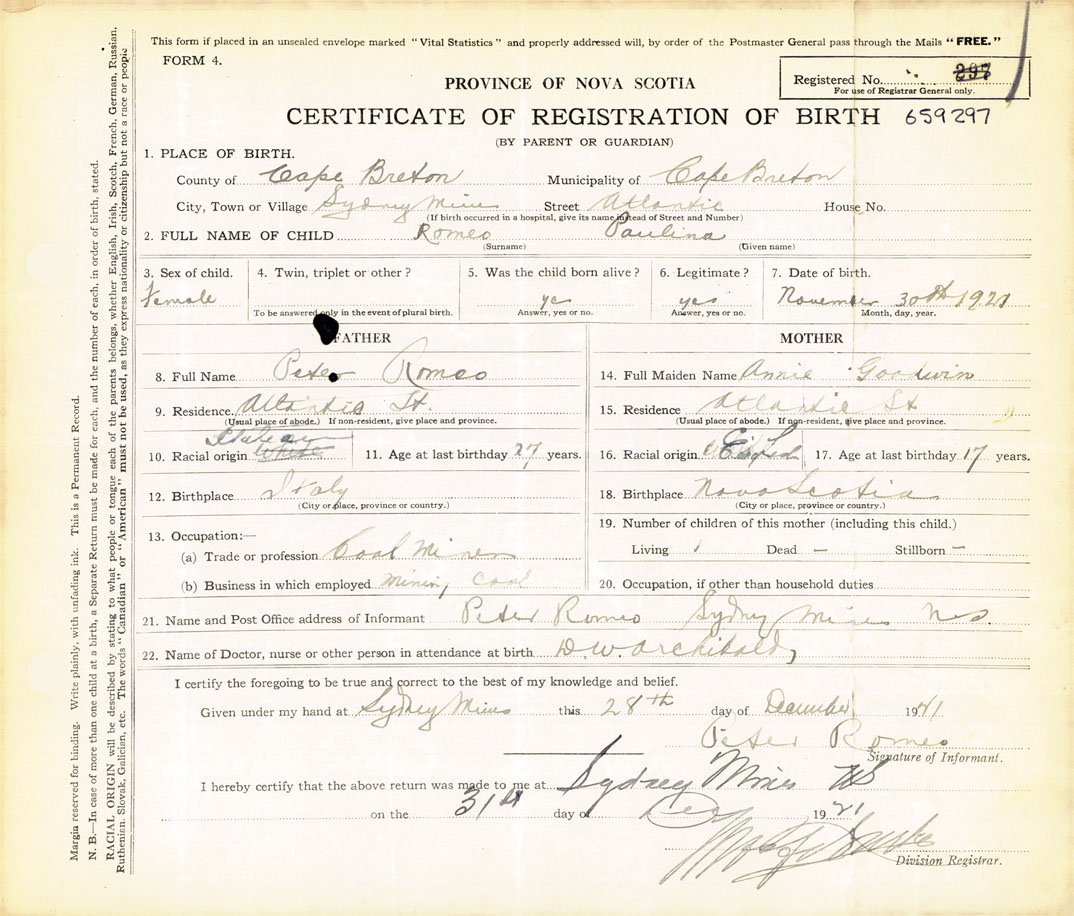 This form if placed in an unsealed envelope marked "Vital Statistics" and properly addressed will, by order of the Postmaster General pass through the Mails "FREE."
FORM 4.
Registered No. 297
For use of Registrar General only.
PROVINCE OF NOVA SCOTIA
CERTIFICATE OF REGISTRATION OF BIRTH 659297
(BY PARENT OR GUARDIAN)
1. PLACE OF BIRTH.
County of Cape Breton Municipality of Cape Breton
City, Town or Village Sydney Mines Street Atlantic House No.
(If birth occurred in a hospital, give its name instead of Street and Number)
2. FULL NAME OF CHILD Romeo Paulina
(Surname) (Given name)
3. Sex of child. 4. Twin, triplet or other? 5. Was the child born alive? 6. Legitimate? 7. Date of birth.
Female yes yes November 30th 1921
To be answered only in the event of plural birth. Answer, yes or no. Answer, yes or no. Month, day, year.
FATHER MOTHER
8. Full Name Peter Romeo 14. Full Maiden Name Annie Goodwin
9. Residence Atlantic St. 15. Residence Atlantic St
(Usual place of abode.) If non-resident, give place and province. (Usual place of abode.) If non-resident, give place and province.
Italian
10. Racial origin White 11. Age at last birthday 27 years. 16. Racial origin 17. Age at last birthday 17 years.
12. Birthplace Italy 18. Birthplace Nova Scotia
(City or place, province or country.) (City or place, province or country.)
13. Occupation:— 19. Number of children of this mother (including this child.)
(a) Trade or profession Coal Miner Living 1 Dead — Stillborn —
(b) Business in which employed Mining Coal 20. Occupation, if other than household duties
21. Name and Post Office address of Informant Peter Romeo Sydney Mines N S
22. Name of Doctor, nurse or other person in attendance at birth D. W. Archibald
I certify the foregoing to be true and correct to the best of my knowledge and belief.
Given under my hand at Sydney Mines this 28th day of December 1921
Peter Romeo
Signature of Informant.
I hereby certify that the above return was made to me at Sydney Mines NS
on the 31st day of Dec 1921
Division Registrar.
Margin reserved for binding. Write plainly, with unfading ink. This is a Permanent Record.
N. B.—In case of more than one child at a birth, a Separate Return must be made for each, and the number of each, in order of birth, stated.
RACIAL ORIGIN will be described by stating to what people or tongue each of the parents belongs, whether English, Irish, Scotch, French, German, Russian,
Ruthenian, Slovak, Galician, etc. The words "Canadian" or "American" must not be used, as they express nationality or citizenship but not a race or people